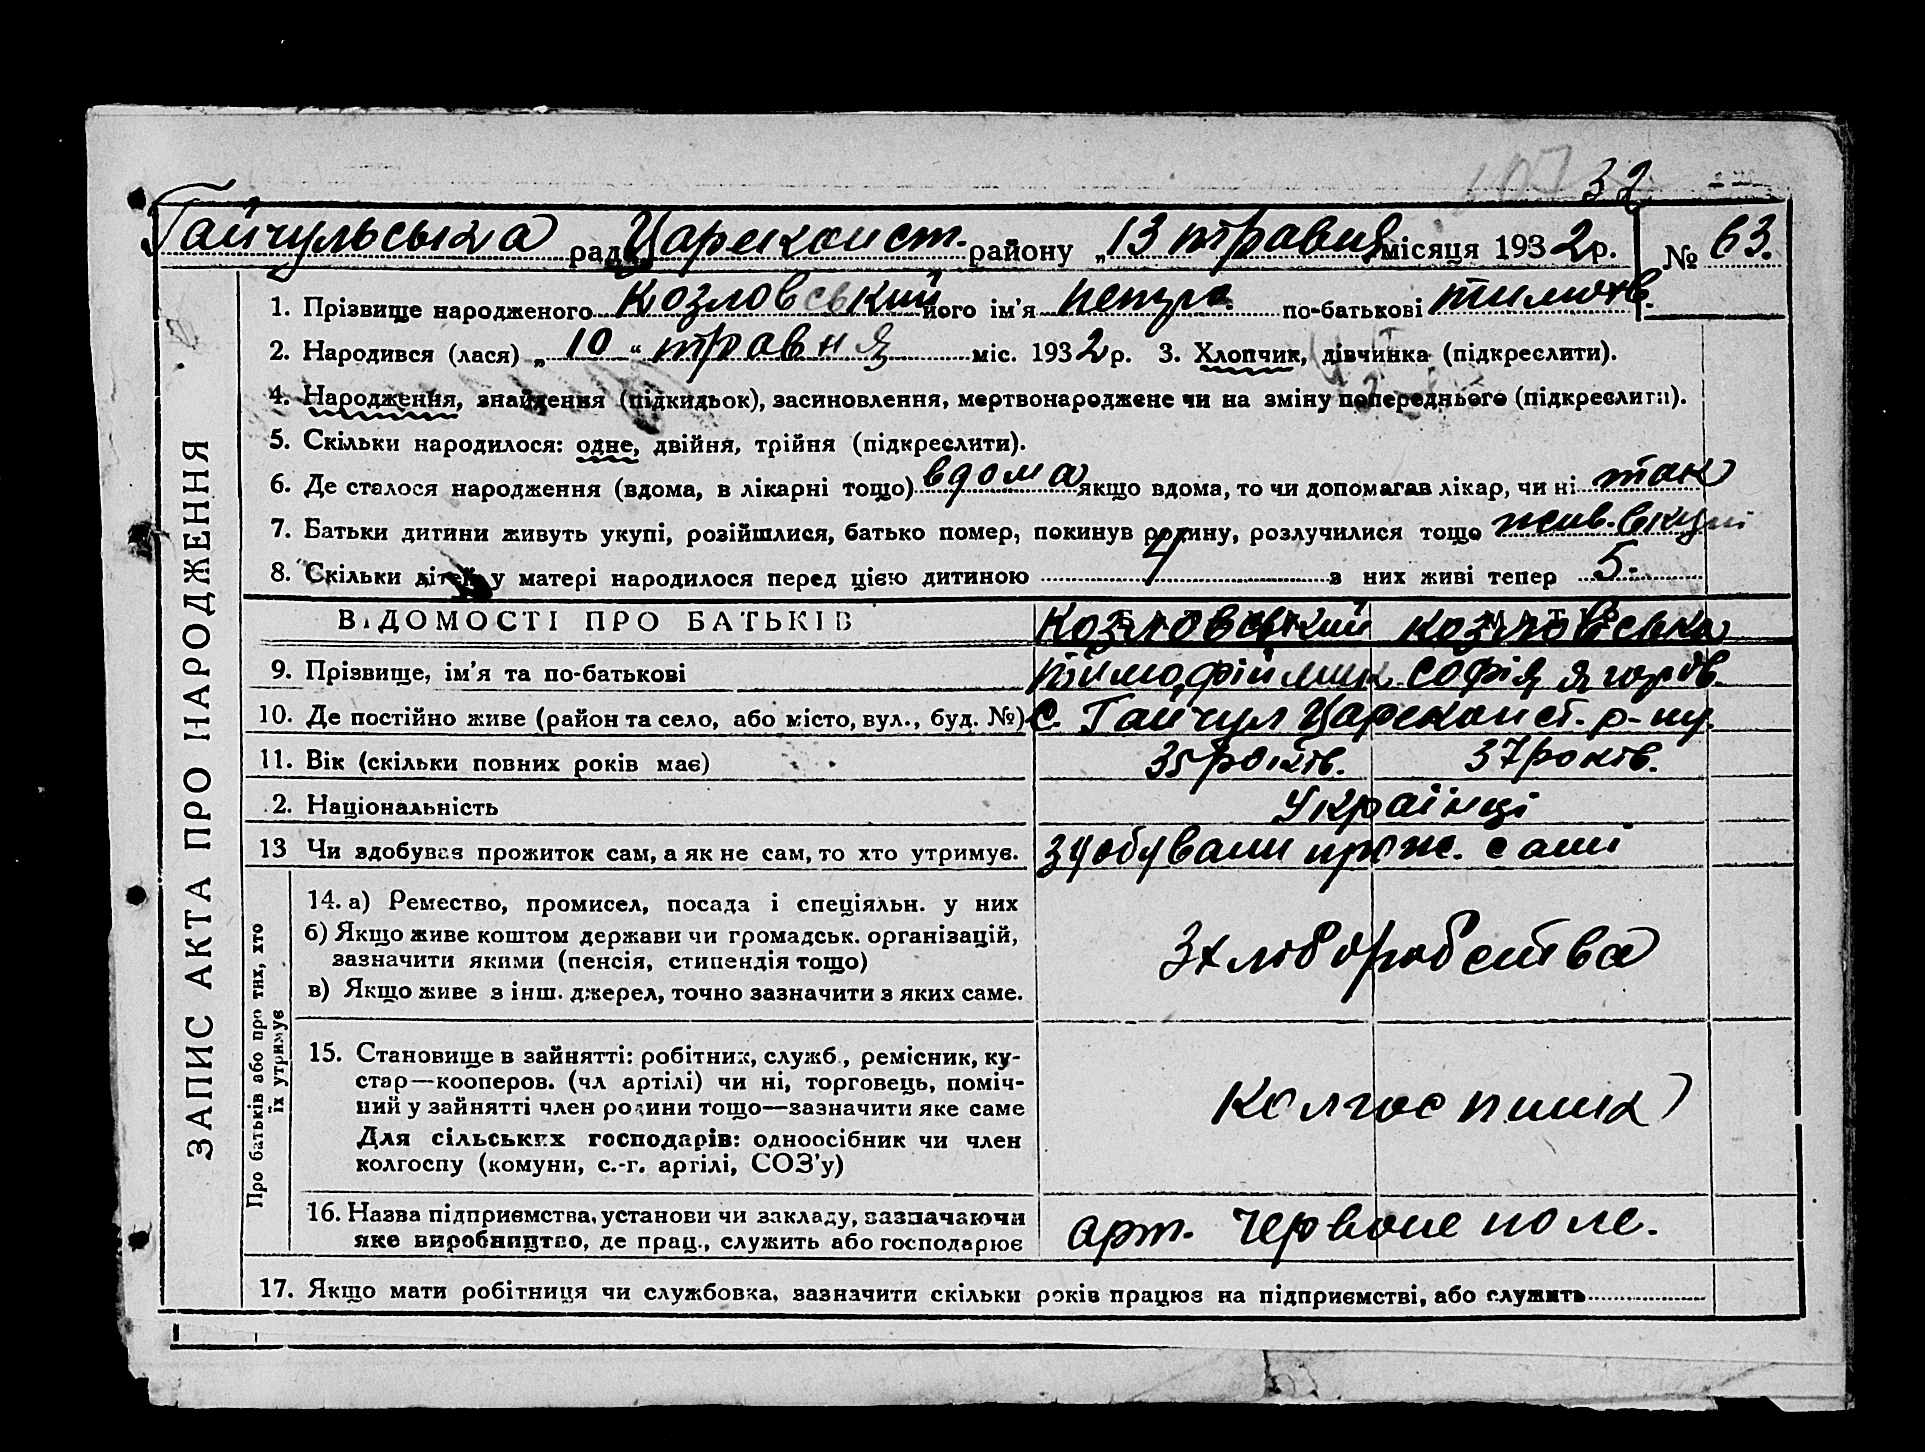 32
Гайчульська рада Царекконст. району „13 травня місяця 1932 р. № 63.
1. Прізвище народженого Козловський його ім'я Петро по-батькові Тимохв.
2. Народився (лася) „10“ травня міс. 1932 р. 3. Хлопчик, дівчинка (підкреслити).
4. Народження, знайдення (підкидьок), засиновлення, мертвонароджене чи на зміну попереднього (підкреслити).
5. Скільки народилося: одне, двійня, трійня (підкреслити).
6. Де сталося народження (вдома, в лікарні тощо) вдома якщо вдома, то чи допомагав лікар, чи ні так
7. Батьки дитини живуть укупі, розійшлися, батько помер, покинув родину, розлучилися тощо жив. вкупі
8. Скільки дітей у матері народилося перед цією дитиною 4 з них живі тепер 5.
ВІДОМОСТІ ПРО БАТЬКІВ Козловський Козловська
9. Прізвище, ім'я та по-батькові Софія Ягорів.
10. Де постійно живе (район та село, або місто, вул., буд. №) С. Гайчул Царекконст. р-ну.
11. Вік (скільки повних років має) 35 років. 37 років.
2. Національність Українці
13 Чи здобував прожиток сам, а як не сам, то хто утримує. здобували прож. самі
14. а) Ремество, промисел, посада і спеціяльн. у них
б) Якщо живе коштом держави чи громадськ. організацій,
зазначити якими (пенсія, стипендія тощо)
в) Якщо живе з інш. джерел, точно зазначити з яких саме.
З хліборобства
15. Становище в зайнятті: робітник, служб., ремісник, ку-
стар—кооперов. (чл артілі) чи ні, торговець, поміч-
ний у зайнятті член родини тощо—зазначити яке саме
Для сільських господарів: одноосібник чи член
колгоспу (комуни, с.-г. артілі, СОЗ'у)
Колгоспник
16. Назва підприємства, установи чи закладу, зазначаючи
яке виробництво, де прац., служить або господарює
арт. Червоне поле.
17. Якщо мати робітниця чи службовка, зазначити скільки років працює на підприємстві, або служить
ЗАПИС АКТА ПРО НАРОДЖЕННЯ
Про батьків або про тих, хто
їх утримує